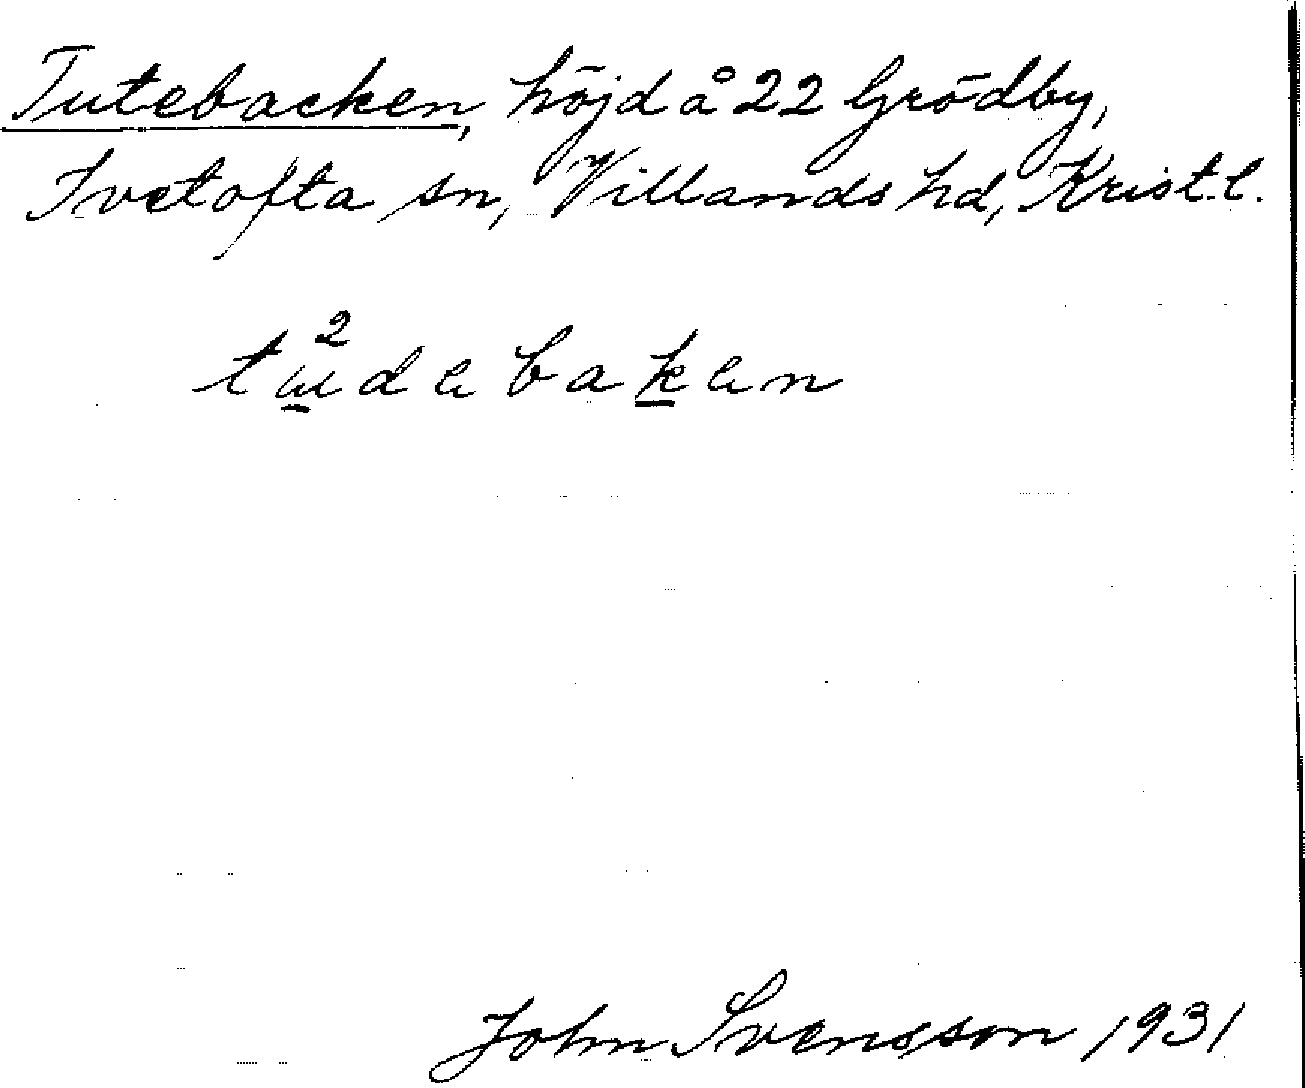 Tutebacken, höjd å 22 Grödby,
Ivetofta sn, Villands hd, Krist.l.
tu²debaken
John Svensson 1931